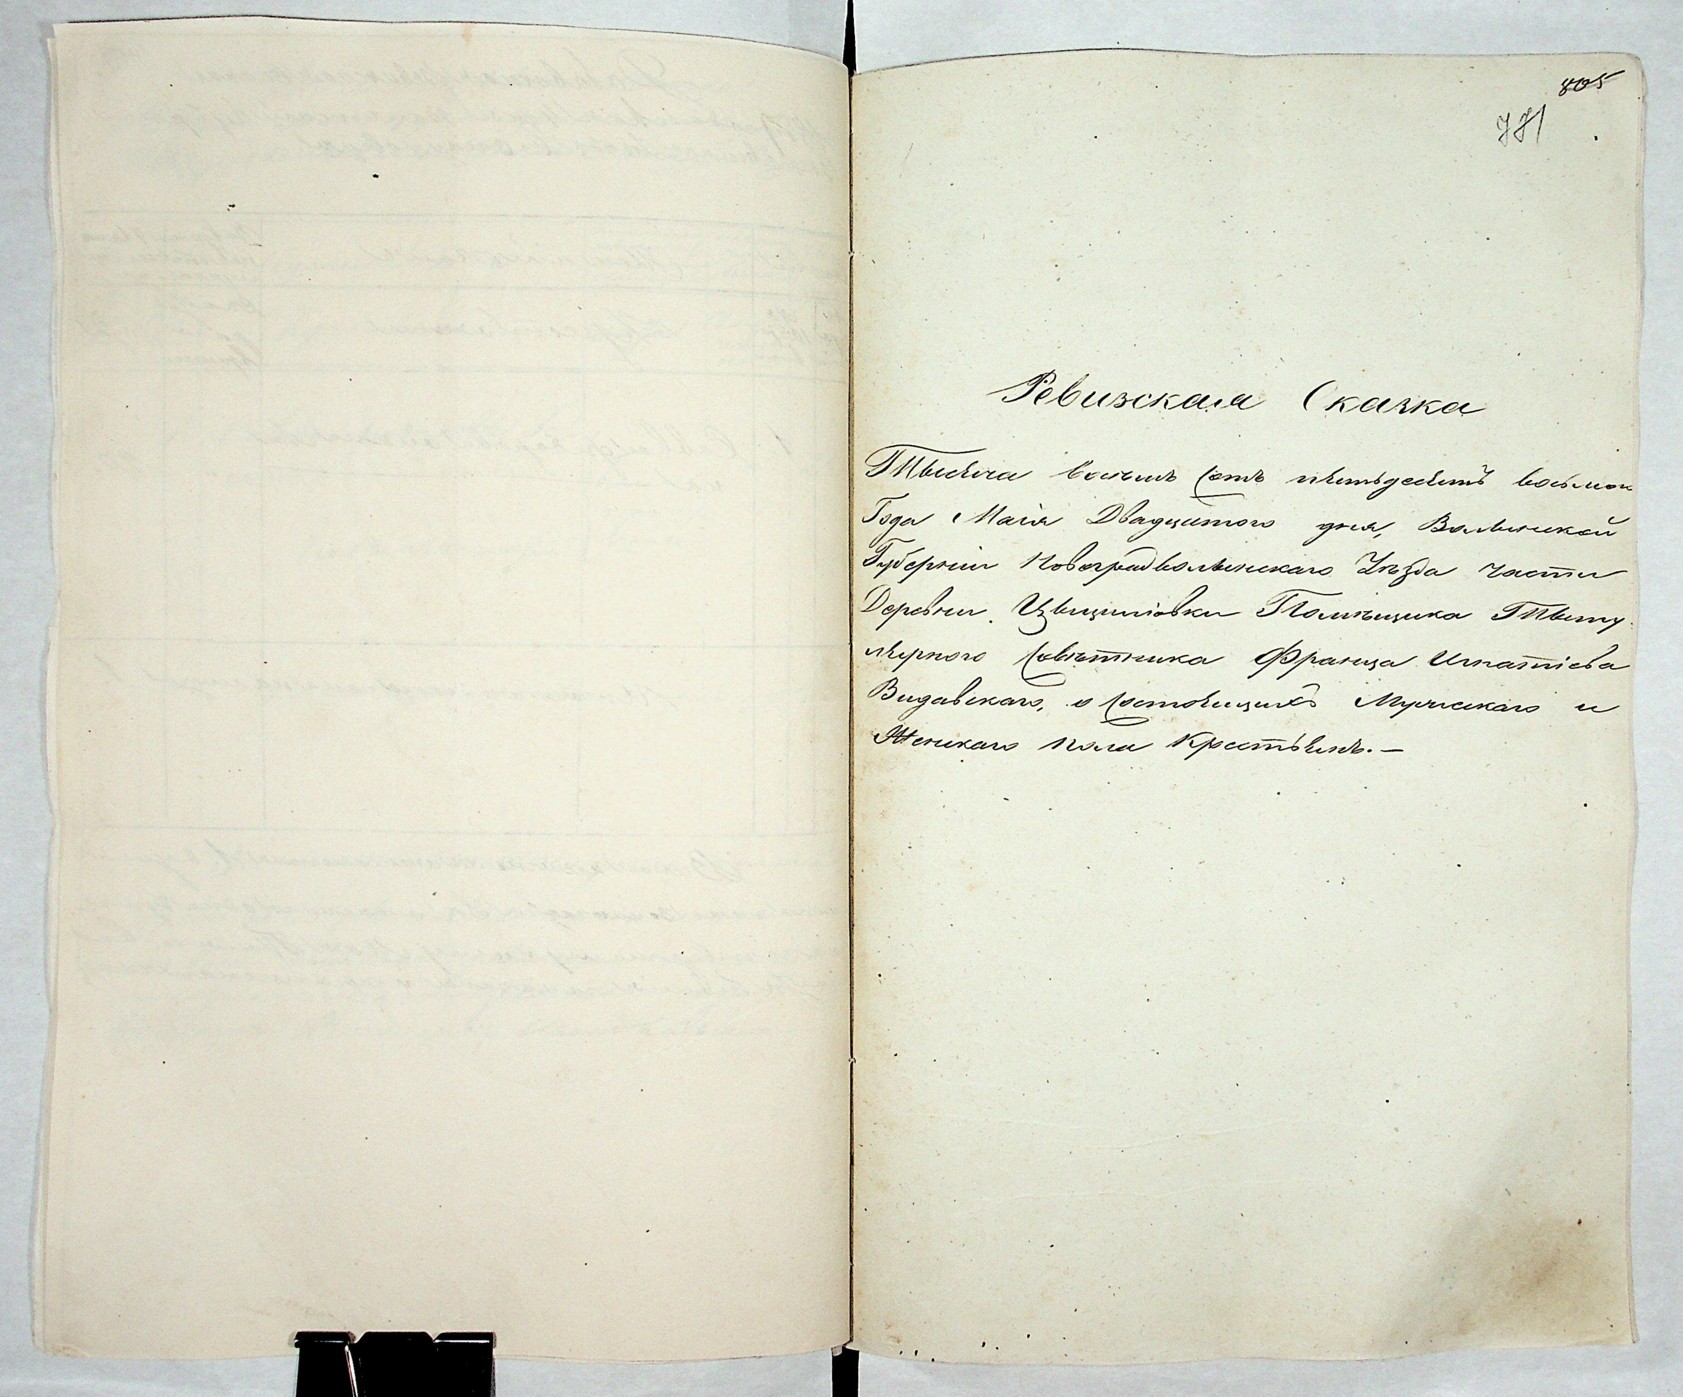 805
771
Ревизская Сказка
Тысяча восемь сотъ пятьдесятъ восьмого
Года Маія Двадцатого дня, Волынской
Губерніи Новоградволынскаго Уѣзда части
Деревни Цвициловки Помѣщика Титу
лярного Совѣтника Франца Игнатіева
Видавскаго, о состоящихъ Мужескаго и
Женскаго пола Крестьянъ.—